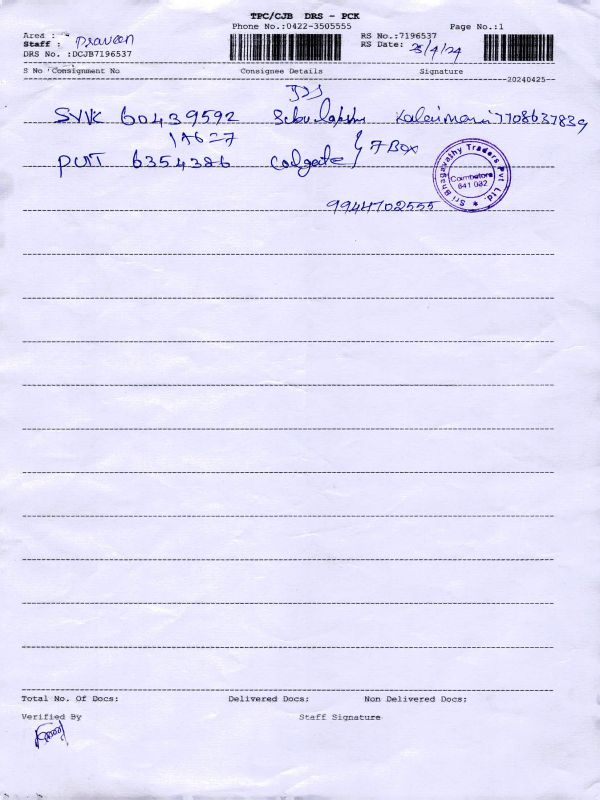 TPC/CJB DRS - PCK
Phone No.:0422-3505555 Page No.:1
Area :
Staff : Praveen
DRS No. :DCJB7196537
RS No.:7196537
RS Date: 25/4/24
S No Consignment No Consignee Details Signature
20240425
SVK 60439592 Kalaimani 7708637839
1 A6=7
PUT 6354386 Colgate } 7 Box
9944702555
Sri Bhagavathy Traders Pvt Ltd.
Coimbatore
641 002
Total No. Of Docs: Delivered Docs: Non Delivered Docs:
Verified By Staff Signature